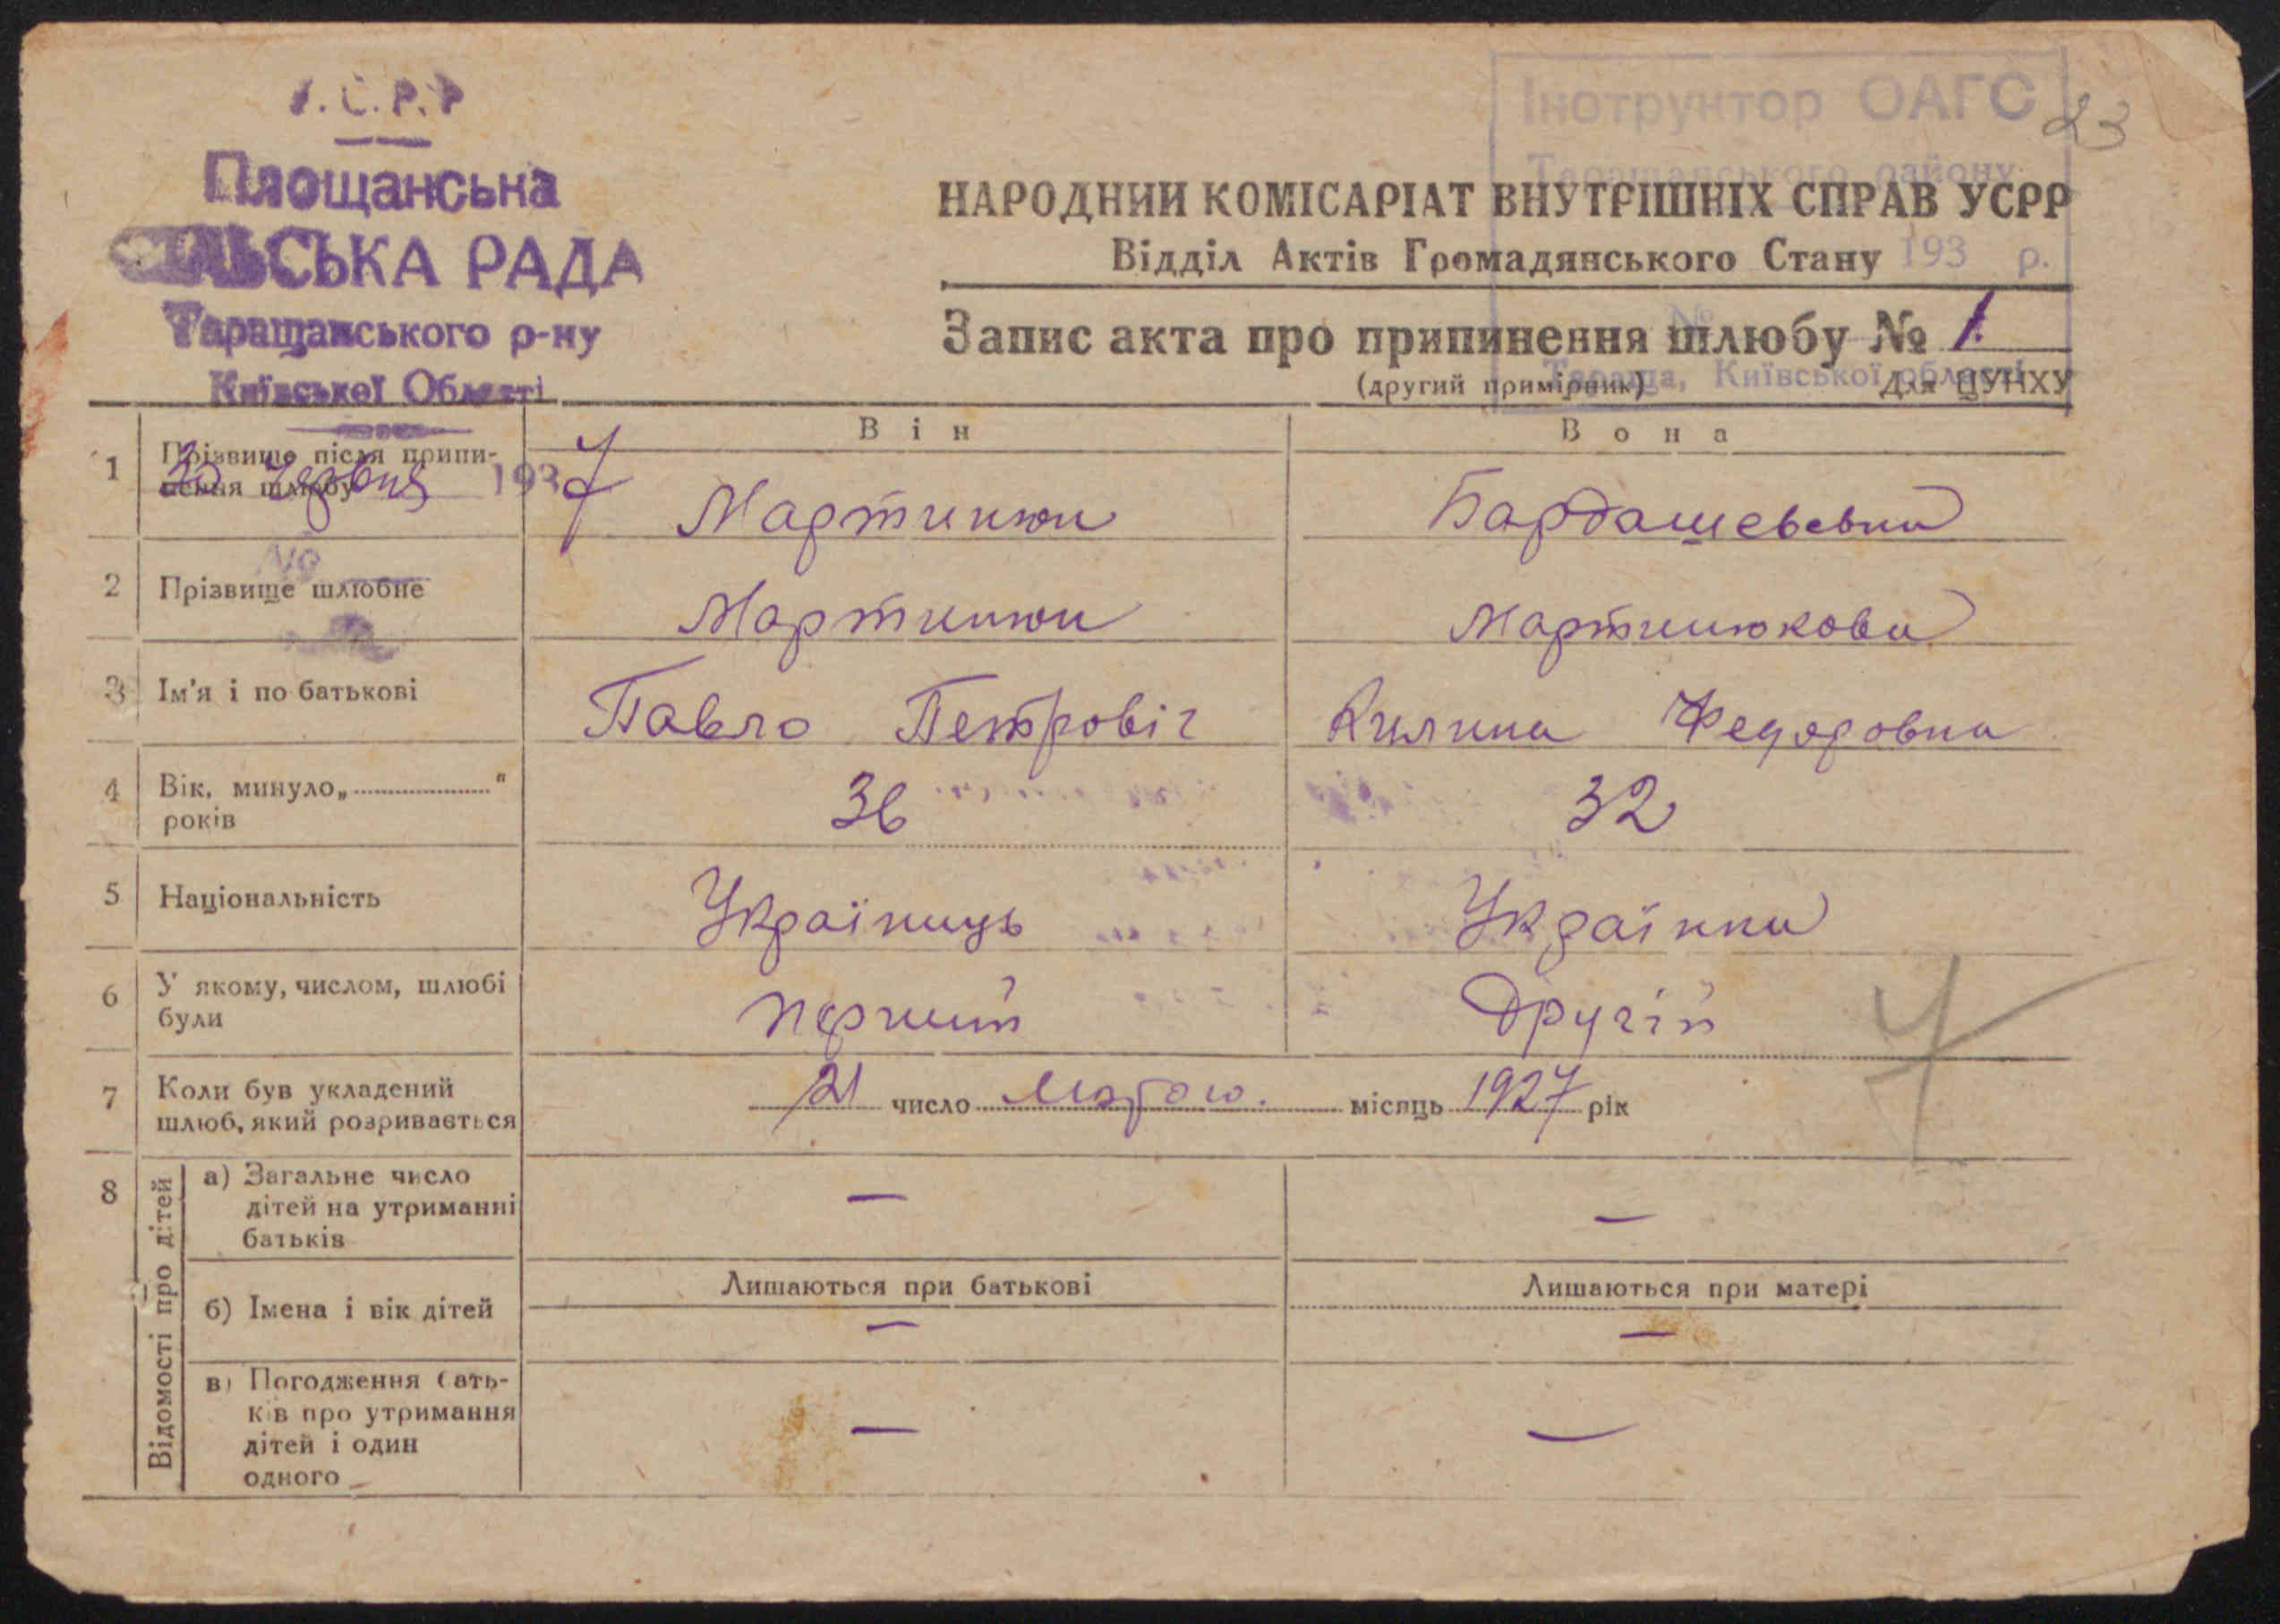 У.С.Р.Р
Площанська
СІЛЬСЬКА РАДА
Таращанського р-ну
Київської Області
30 Червня 1937
№
Інструктор ОАГС
Таращанського району
193 р.
№
Тараща, Київської області
23
НАРОДНИЙ КОМІСАРІАТ ВНУТРІШНІХ СПРАВ УСРР
Відділ Актів Громадянського Стану
Запис акта про припинення шлюбу № 1.
(другий примірник) Для ЦУНХУ
Він Вона
1 Прізвище після припи-
нення шлюбу Мартинюк
2 Прізвище шлюбне Мартинюк Мартинюкова
3 Ім'я і по батькові Павло Петровіч Килина Федоровна
4 Вік, минуло „ “
років 36 32
5 Національність Українць Українка
6 У якому, числом, шлюбі
були перший Другій
7 Коли був укладений
шлюб, який розривається 21 число місяць 1927 рік
8 Відомості про дітей
а) Загальне число
дітей на утриманні
батьків — —
Лишаються при батькові Лишаються при матері
б) Імена і вік дітей — —
в) Погодження бать-
ків про утримання
дітей і один
одного — —